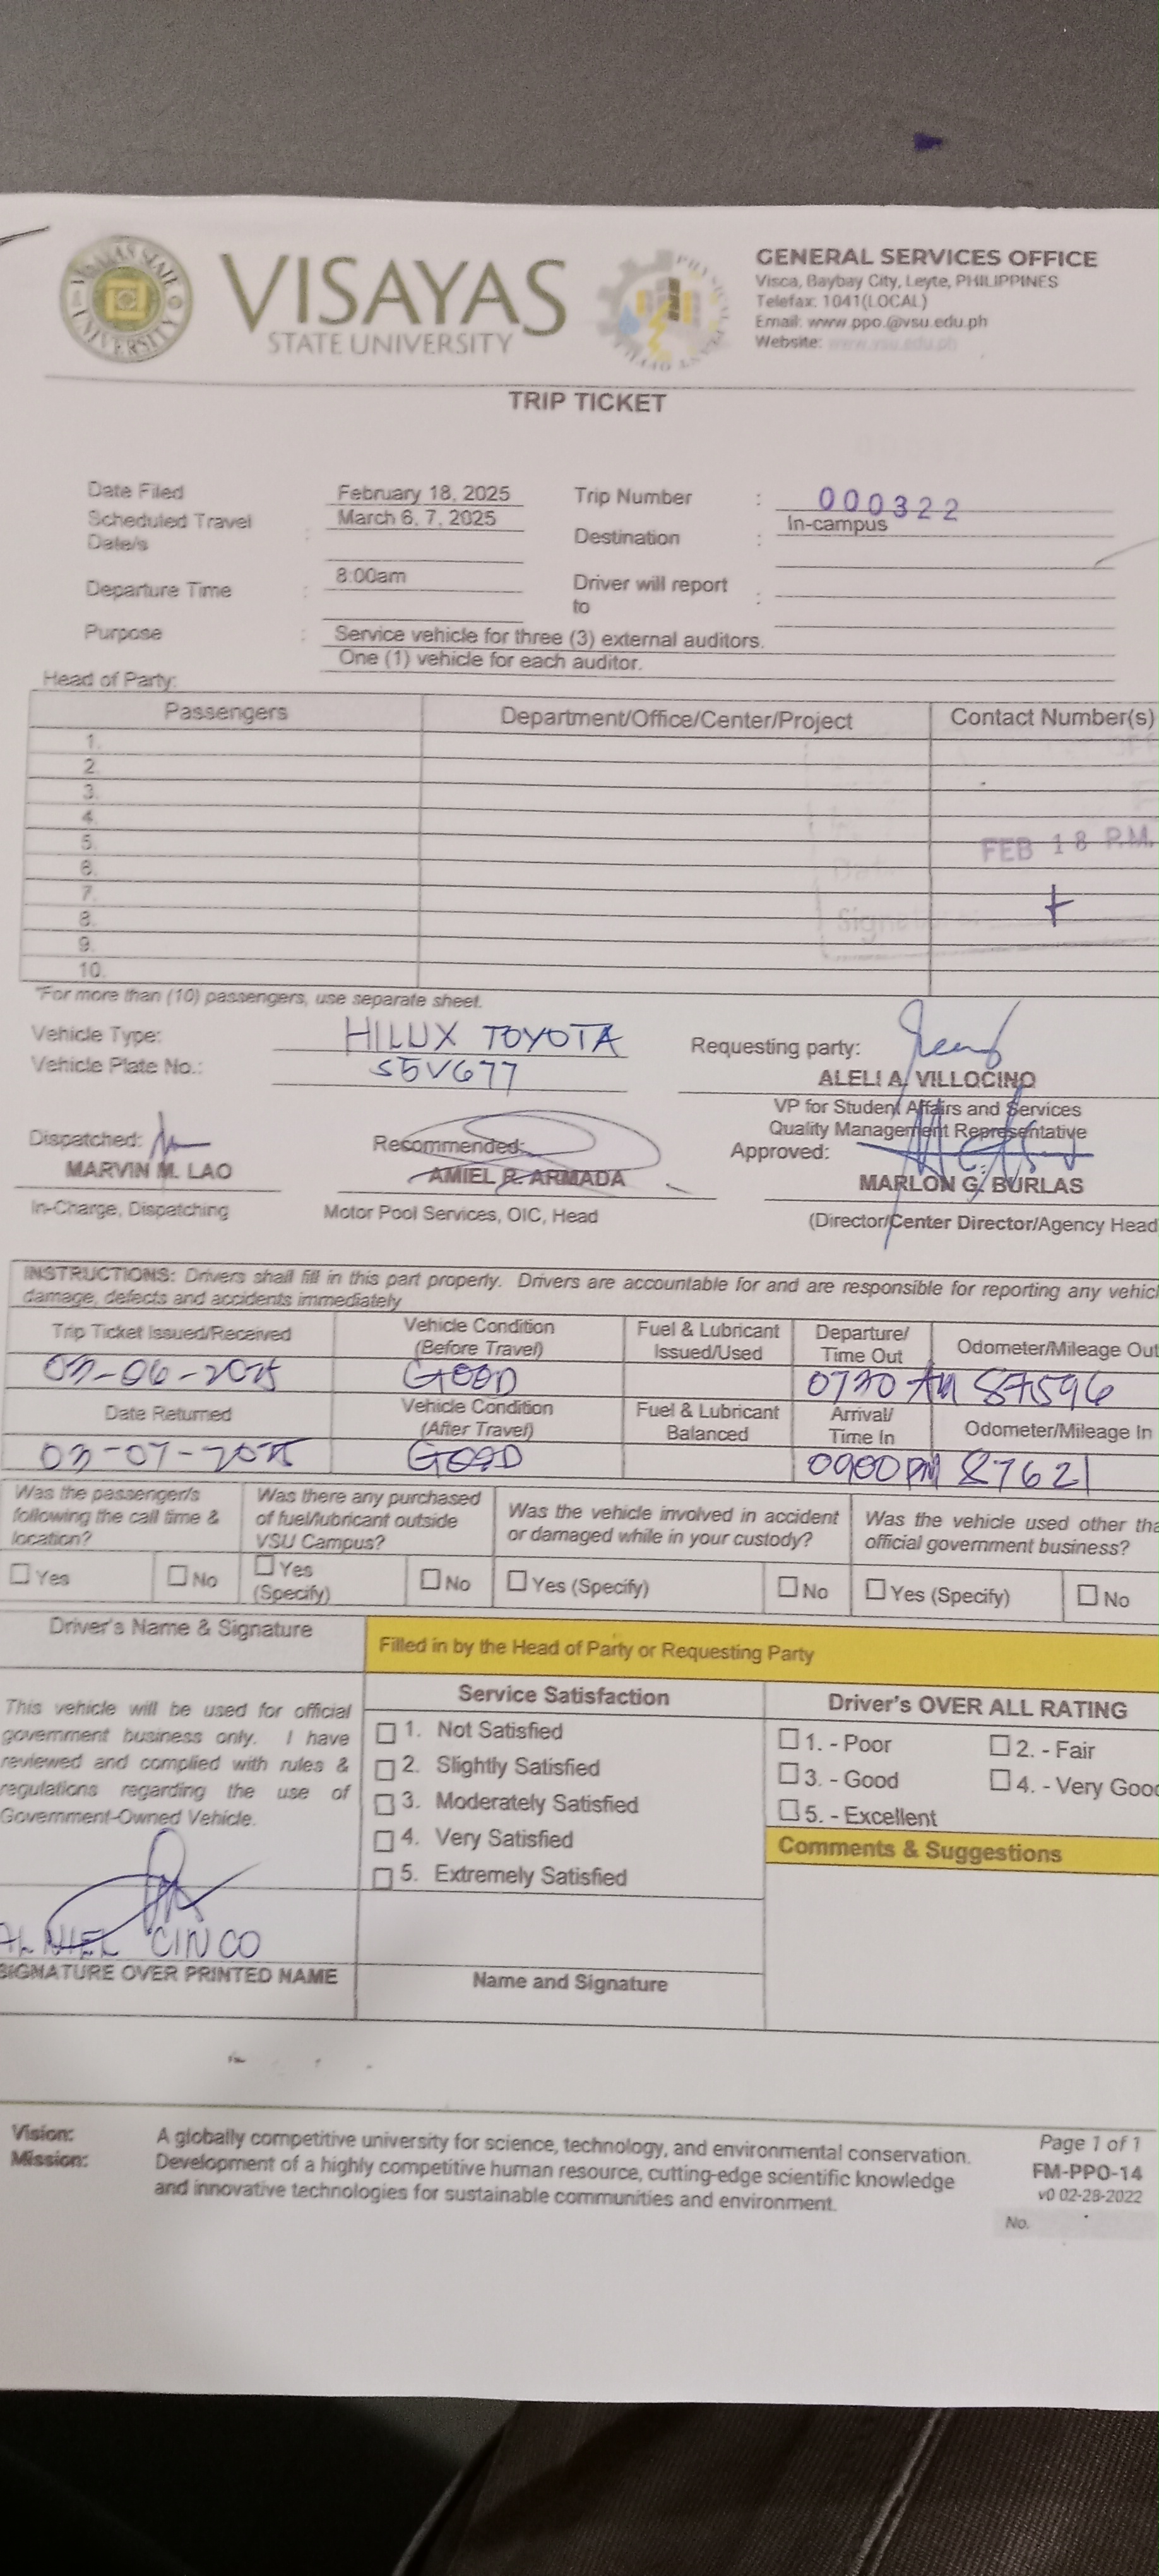 VISAYAS STATE UNIVERSITY
VISAYAS
STATE UNIVERSITY
GENERAL SERVICES OFFICE
Visca, Baybay City, Leyte, PHILIPPINES
Telefax: 1041(LOCAL)
Email: www.ppo.@vsu.edu.ph
Website: www.vsu.edu.ph
TRIP TICKET
Date Filed February 18, 2025 Trip Number : 000322
Scheduled Travel Date/s : March 6, 7, 2025 Destination : In-campus
Departure Time : 8:00am Driver will report to :
Purpose : Service vehicle for three (3) external auditors.
One (1) vehicle for each auditor.
Head of Party:
Passengers Department/Office/Center/Project Contact Number(s)
1.
2.
3.
4.
5.
6.
7.
8.
9.
10.
FEB 18 P.M.
*For more than (10) passengers, use separate sheet.
Vehicle Type: HILUX TOYOTA
Vehicle Plate No.: S5V677
Requesting party:
ALELI A. VILLOCINO
VP for Student Affairs and Services
Quality Management Representative
Dispatched: Recommended: Approved:
MARVIN M. LAO AMIEL R. ARMADA MARLON G. BURLAS
In-Charge, Dispatching Motor Pool Services, OIC, Head (Director/Center Director/Agency Head
INSTRUCTIONS: Drivers shall fill in this part properly. Drivers are accountable for and are responsible for reporting any vehicl
damage, defects and accidents immediately
Trip Ticket Issued/Received Vehicle Condition (Before Travel) Fuel & Lubricant Issued/Used Departure/ Time Out Odometer/Mileage Out
03-06-2025 GOOD 0730 AM 87596
Date Returned Vehicle Condition (After Travel) Fuel & Lubricant Balanced Arrival/ Time In Odometer/Mileage In
03-07-2025 GOOD 0900 PM 87621
Was the passenger/s following the call time & location? Was there any purchased of fuel/lubricant outside VSU Campus? Was the vehicle involved in accident or damaged while in your custody? Was the vehicle used other tha official government business?
Yes No Yes (Specify) No Yes (Specify) No Yes (Specify) No
Driver's Name & Signature
Filled in by the Head of Party or Requesting Party
This vehicle will be used for official
government business only. I have
reviewed and complied with rules &
regulations regarding the use of
Government-Owned Vehicle.
CINCO
SIGNATURE OVER PRINTED NAME
Service Satisfaction
1. Not Satisfied
2. Slightly Satisfied
3. Moderately Satisfied
4. Very Satisfied
5. Extremely Satisfied
Name and Signature
Driver's OVER ALL RATING
1. - Poor 2. - Fair
3. - Good 4. - Very Good
5. - Excellent
Comments & Suggestions
Vision: A globally competitive university for science, technology, and environmental conservation.
Mission: Development of a highly competitive human resource, cutting-edge scientific knowledge
and innovative technologies for sustainable communities and environment.
Page 1 of 1
FM-PPO-14
v0 02-28-2022
No.